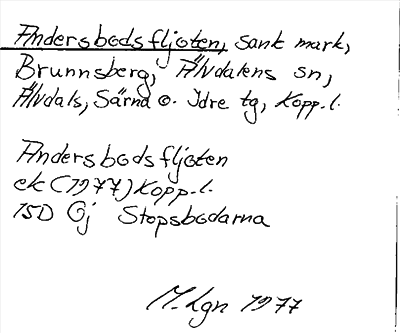 Andersbodsfljoten, sank mark,
Brunnsberg, Älvdalens sn,
Älvdals, Särna o. Idre tg, Kopp. l.
Andersbodsfljoten
ek (1977) Kopp. l.
15D 0j Stopsbodarna
M. Lgn 1977